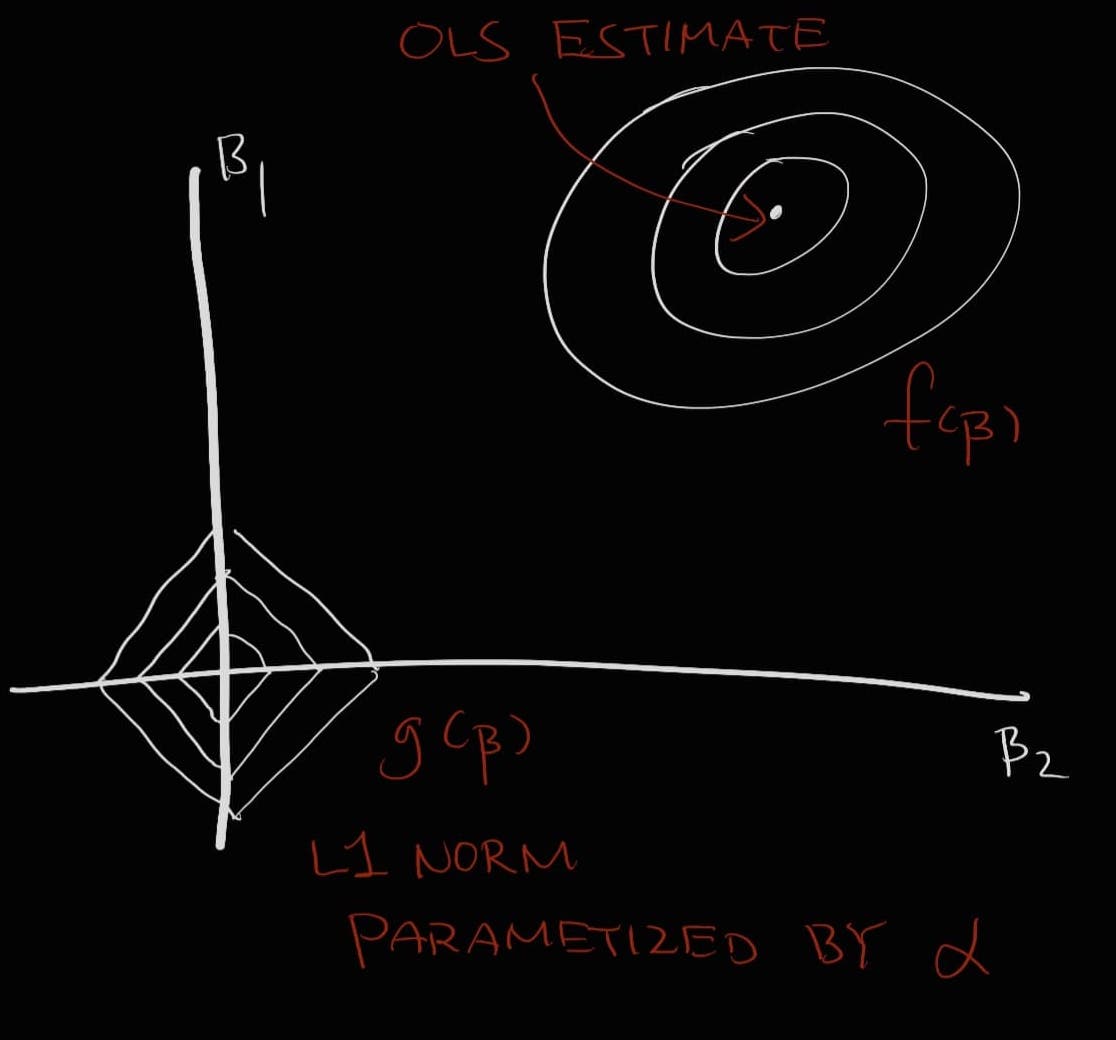 OLS ESTIMATE
β1
f(β)
g(β)
β2
L1 NORM
PARAMETIZED BY α